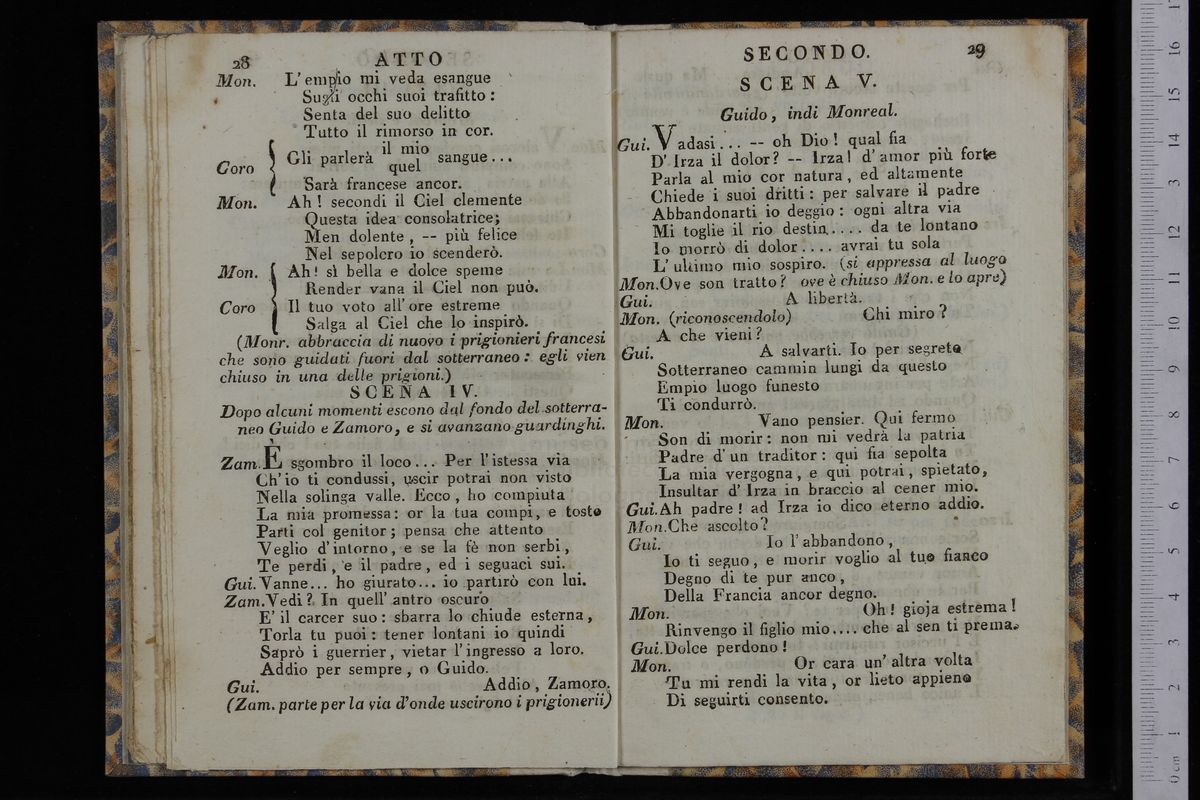 28 ATTO
Mon. L'empio mi veda esangue
Sugli occhi suoi trafitto:
Senta del suo delitto
Tutto il rimorso in cor.
Coro Gli parlerà il mio sangue...
quel
Sarà francese ancor.
Mon. Ah! secondi il Ciel clemente
Questa idea consolatrice;
Men dolente, -- più felice
Nel sepolcro io scenderò.
Mon. Ah! sì bella e dolce speme
Render vana il Ciel non può.
Coro Il tuo voto all'ore estreme
Salga al Ciel che lo inspirò.
(Monr. abbraccia di nuovo i prigionieri francesi
che sono guidati fuori dal sotterraneo: egli vien
chiuso in una delle prigioni.)
SCENA IV.
Dopo alcuni momenti escono dal fondo del sotterra-
neo Guido e Zamoro, e si avanzano guardinghi.
Zam. È sgombro il loco... Per l'istessa via
Ch'io ti condussi, uscir potrai non visto
Nella solinga valle. Ecco, ho compiuta
La mia promessa: or la tua compi, e tosto
Parti col genitor; pensa che attento
Veglio d'intorno, e se la fè non serbi,
Te perdi, e il padre, ed i seguaci sui.
Gui. Vanne... ho giurato... io partirò con lui.
Zam. Vedi? In quell'antro oscuro
E' il carcer suo: sbarra lo chiude esterna,
Torla tu puoi: tener lontani io quindi
Saprò i guerrier, vietar l'ingresso a loro.
Addio per sempre, o Guido.
Gui. Addio, Zamoro.
(Zam. parte per la via d'onde uscirono i prigionerii)
SECONDO. 29
SCENA V.
Guido, indi Monreal.
Gui. Vadasi... -- oh Dio! qual fia
D'Irza il dolor? -- Irza! d'amor più forte
Parla al mio cor natura, ed altamente
Chiede i suoi dritti: per salvare il padre
Abbandonarti io deggio: ogni altra via
Mi toglie il rio destin.... da te lontano
Io morrò di dolor.... avrai tu sola
L'ultimo mio sospiro. (si appressa al luogo
Mon. Ove son tratto? ove è chiuso Mon. e lo apre)
Gui. A libertà.
Mon. (riconoscendolo) Chi miro?
A che vieni?
Gui. A salvarti. Io per segreto
Sotterraneo cammin lungi da questo
Empio luogo funesto
Ti condurrò.
Mon. Vano pensier. Qui fermo
Son di morir: non mi vedrà la patria
Padre d'un traditor: qui fia sepolta
La mia vergogna, e qui potrai, spietato,
Insultar d'Irza in braccio al cener mio.
Gui. Ah padre! ad Irza io dico eterno addio.
Mon. Che ascolto?
Gui. Io l'abbandono,
Io ti seguo, e morir voglio al tuo fianco
Degno di te pur anco,
Della Francia ancor degno.
Mon. Oh! gioja estrema!
Rinvengo il figlio mio.... che al sen ti prema.
Gui. Dolce perdono!
Mon. Or cara un'altra volta
Tu mi rendi la vita, or lieto appieno
Di seguirti consento.